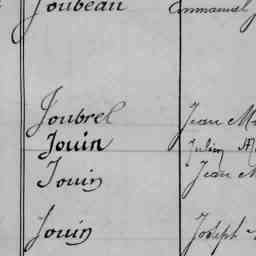 Joubeau Emmanuel
Joubrel Jean M
Jouin Julien M
Jouin Jean M
Jouin Joseph